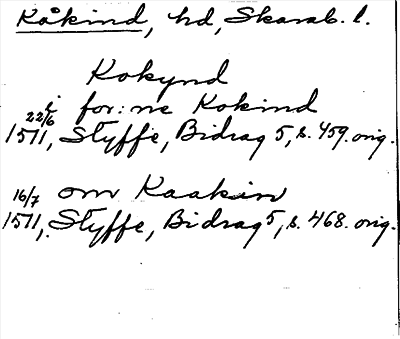 Kåkind, hd, Skarab. l.
Kokynd
i for:ne Kokind
22/6 1511, Styffe, Bidrag 5, s. 459. orig.
om Kaakin
16/7 1511, Styffe, Bidrag 5, s. 468. orig.